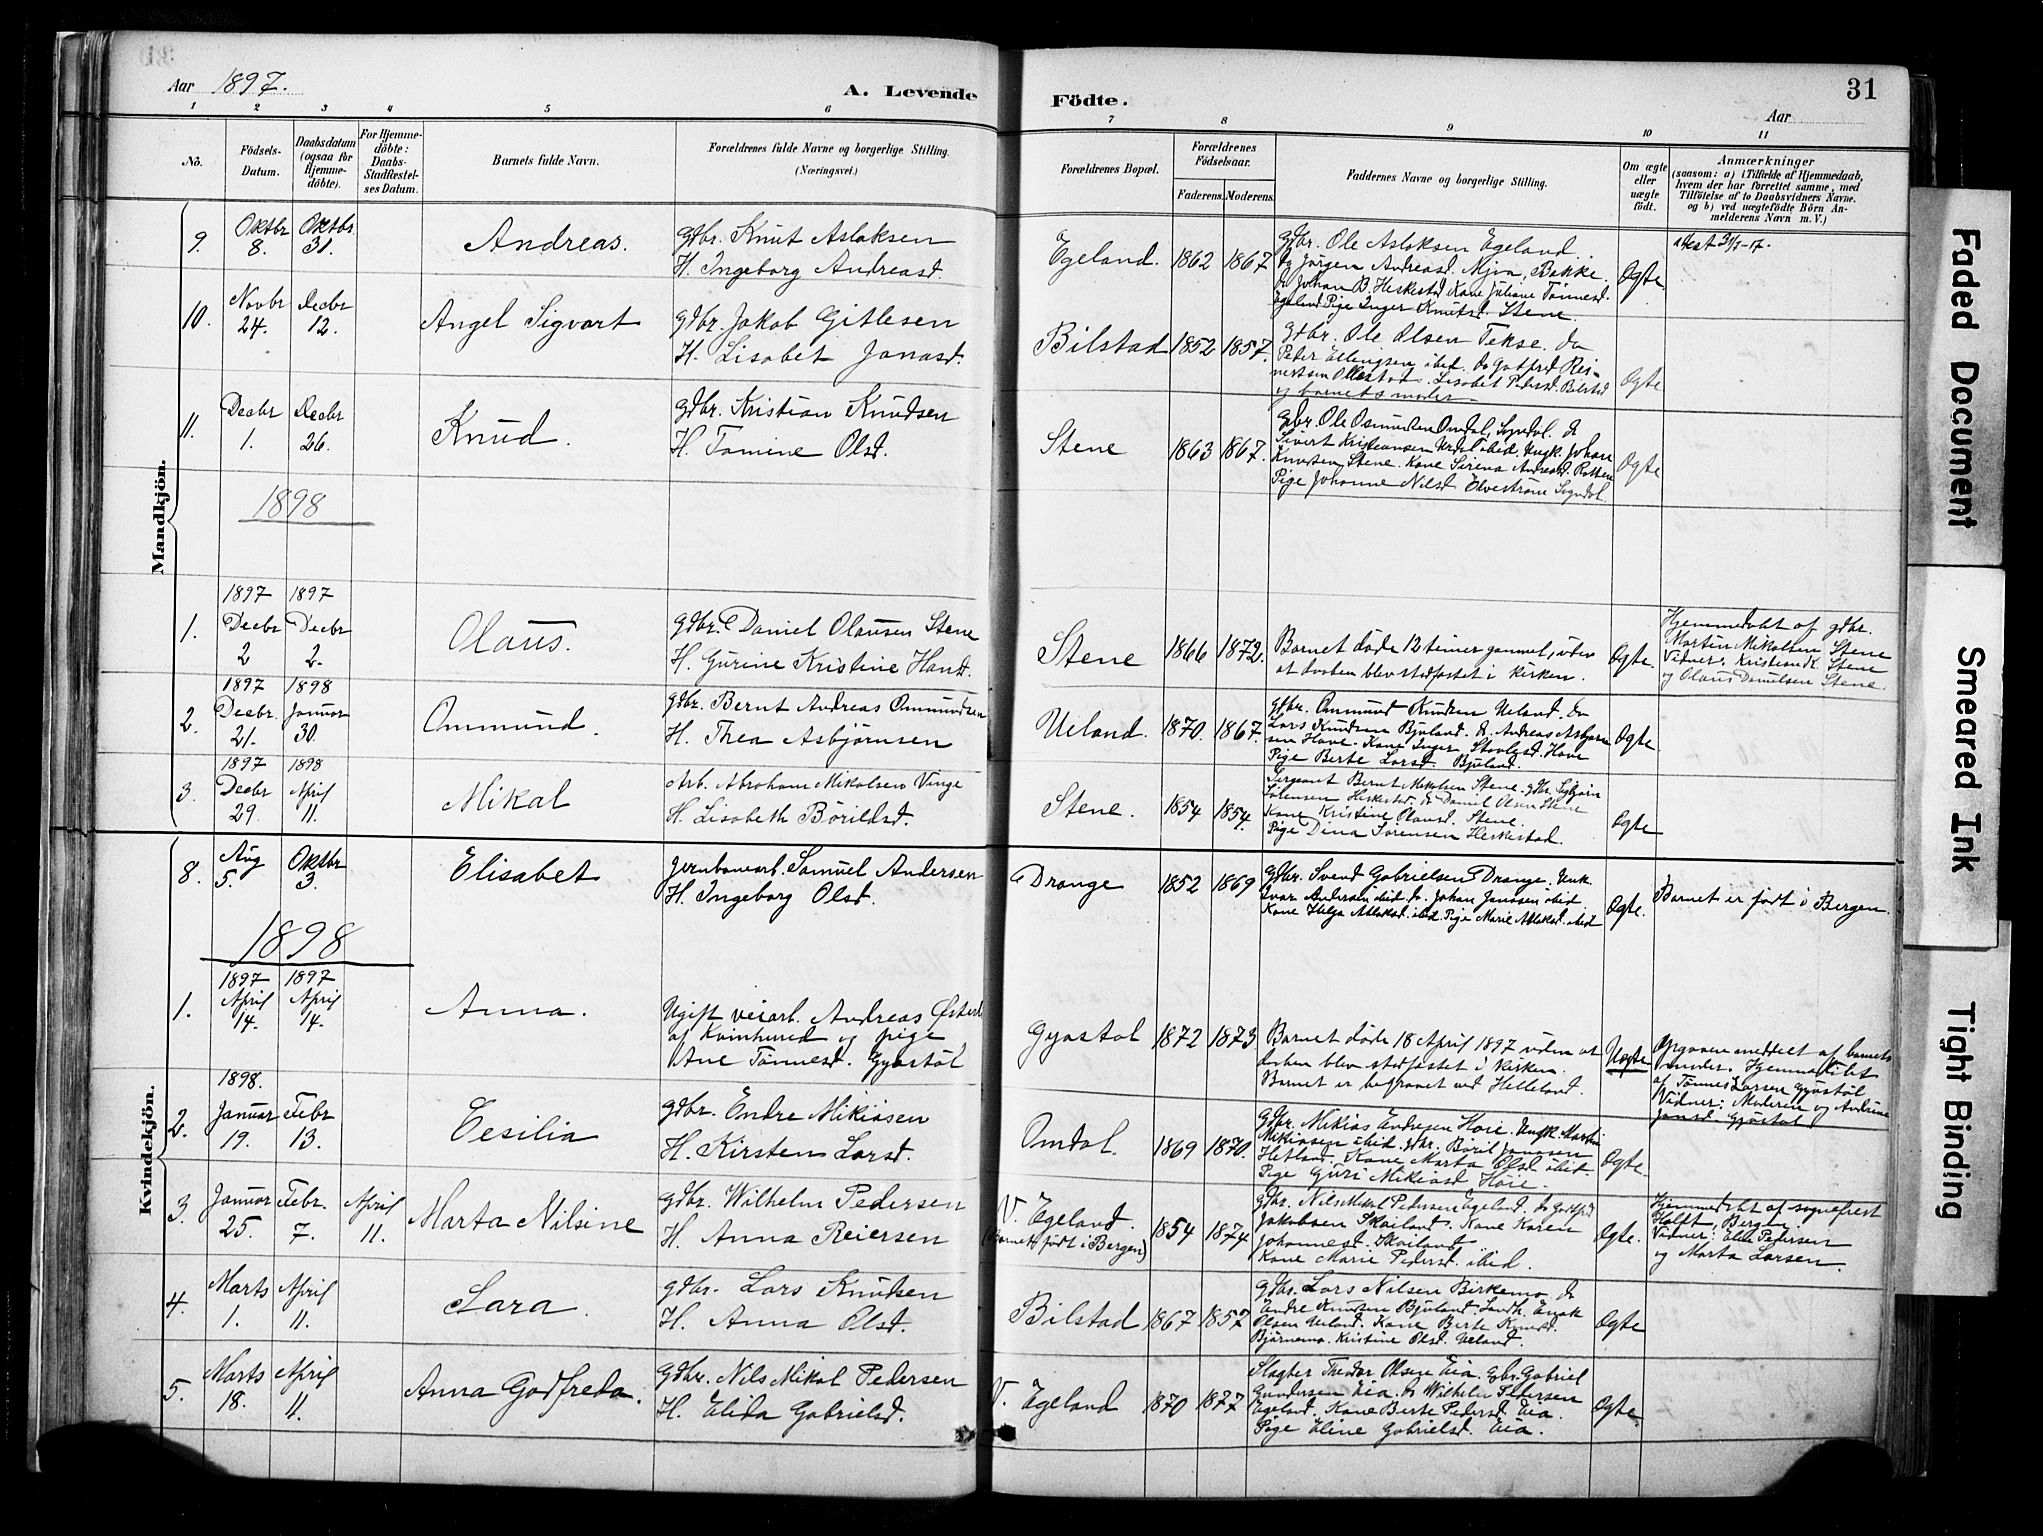 Aar 1897.
A. Levende
Födte.
31
Aar
1 2 3 4 5 6 7 8 9 10 11
No.
Födsels-Datum.
Daabsdatum (ogsaa for Hjemme-döbte).
For Hjemme-döbte: Daabs-Stadfæstel-ses Datum.
Barnets fulde Navn.
Forældrenes fulde Navne og borgerlige Stilling.
(Næringsvei.)
Forældrenes Bopæl.
Forældrenes Födselsaar.
Faderens. Moderens.
Faddernes Navne og borgerlige Stilling.
Om ægte eller uægte födt.
Anmærkninger
(saasom: a) i Tilfælde af Hjemmedaab,
hvem der har forrettet samme, med
Tilföielse af to Daabsvidners Navne.
og b) ved uægtefödte Börn An-
melderens Navn m. V.)
Mandkjön.
9. Oktbr 8. Oktbr 31. Andreas.
Gdbr. Knut Aslaksen
H. Ingeborg Andreasd.
Egeland. 1862 1867
Gdbr. Ole Aslaksen Egeland.
Jörgen Andreasd. Mjva, Bakke.
Johan B. Heskestad Kone Juliane Tönnesd.
Egeland Pige Inger Knutsd. Stene.
Ægte
10. Novbr 24. Decbr 12. Angel Sigvart
Gdbr. Jakob Gitlesen
H. Lisabet Jonasd.
Bilstad 1852 1857.
Gdbr. Ole Olsen Tekse. do
Peder Ellingsen ibid. do Gotfred Rei-
nertsen Ollestad. Lisabet Pedersd. Bilstad
og barnets moder.
Ægte
11. Decbr 1. Decbr 26. Knud.
Gdbr. Kristian Knudsen
H. Tomine Olsd.
Stene 1863 1867.
Gdbr. Ole Osmundsen Omdal, Sogndal. do
Sivert Kristiansen ibid. Ungk. Johan
Knudsen Stene. Kone Serena Andreasd.
Pige Johanne Nilsd. Elvestrøm Sogndal.
Ægte
1898
1. 1897 Decbr 2 1897 Decbr 2. Olaus.
Gdbr. Daniel Olausen Stene
H. Gurine Kristine Hansd.
Stene 1866 1872.
Barnet døde 12 timer gammel, uden
at daaben blev stadfæstet i kirken.
Ægte.
Hjemmedøbt af gdbr.
Martin Mikalsen Stene
Vidner: Kristian K. Stene
og Olaus Danielsen Stene.
2. 1897 Decbr. 21. 1898 Januar 30. Ommund.
Gdbr. Bernt Andreas Ommundsen
H. Thea Asbjørnsen
Ueland. 1870. 1867.
Gdbr. Ommund Knudsen Ueland. do
Lars Knudsen Bjuland. do Andreas Asbjørn-
sen Hove. Kone Inger Hove
Pige Berte Larsd. Bjuland.
Ægte
3. 1897 Decbr 29. 1898 April 11. Mikal
Arb. Abraham Mikalsen Vinge
H. Lisabeth Börildsd.
Stene. 1854 1854.
Sergeant Bernt Mikalsen Stene. gdbr. Sigbjørn
Sörensen Heskestad. do Daniel Olsen Stene
Kone Kristine Olausd. Stene.
Pige Dina Sørensen Heskestad.
Ægte
Kvindekjön.
8. Aug 5. Oktbr 3. Elisabet
Jernbanearb. Samuel Andersen
H. Ingeborg Olsd.
Drange 1852 1869
Gdbr. Svend Gabrielsen Drange. Unk.
Ivar Andersen ibid. do. Johan Janssen ibid.
Kone Helga Aslaksd. ibid. Pige Marie Aslaksd. ibid
Ægte.
Barnet er født i Bergen.
1898
1. 1897 April 14. 1897 April 14. Anna.
Ugift veiarb. Andreas
af Kvinherred og pige
Ane Tönnesd. Gyastöl
Gyastøl 1872 1873
Barnet døde 18 April 1897 uden at
daaben blev stadfæstet i kirken.
Barnet er begravet ved Helleland.
Uægte
Opgaven meddelt af barnets
moder. Hjemmedøbt
af Tönnes Larsen Gyastøl
Vidner: Moderen og Andrine
Jonsd. Gyastøl
2. 1898. Januar 19. Febr 13. Cesilia
Gdbr. Endre Mikiasen
H. Kirsten Larsd.
Omdal. 1869 1870.
Gdbr. Mikias Endresen Hoie. Ungk. Martin
Mikiasen ibid. gdbr. Böril Jonassen
Hetland. Kone Marta Olsd. ibid.
Pige Guri Mikiasd Hoie.
Ægte.
3. Januar 25. Febr. 7. April 11. Marta Nilsine
Gdbr. Wilhelm Pedersen
H. Anna Reiersen
V. Egeland.
(Barnet født i Bergen)
1854 1874
Gdbr. Nils Mikal Pedersen Egeland. do Gotfred
Jakobsen Skailand. Kone Karen
Johannesd. Skailand
Kone Marie Pedersd. ibid.
Ægte.
Hjemmedøbt af sogneprest
Bergen.
Vidner: Elen Pedersen
og Marta Larsen.
4. Marts 1. April 11. Lara.
Gdbr. Lars Knudsen
H. Anna Olsd.
Bilstad 1867 1857
Gdbr. Lars Nilsen Birkemo. do
Endre Knudsen Bjuland. Landh. Enok
Olsen Ueland. Kone Berte Knudsd.
Bjørnemo. Kristine Olsd. Ueland.
Ægte
5. Marts 18. April 11. Anna Godfreda.
Gdbr. Nils Mikal Pedersen
H. Elida Gabrielsd.
V. Egeland 1870 1877
Slagter Theodor Olsen Eia. Gbr. Gabriel
Gundersen Eia. do Wilhelm Pedersen
Egeland. Kone Berte Pedersd. Eia.
Pige Eline Gabrielsd. Eia.
Ægte.
Faded Document
Smeared Ink
Tight Binding